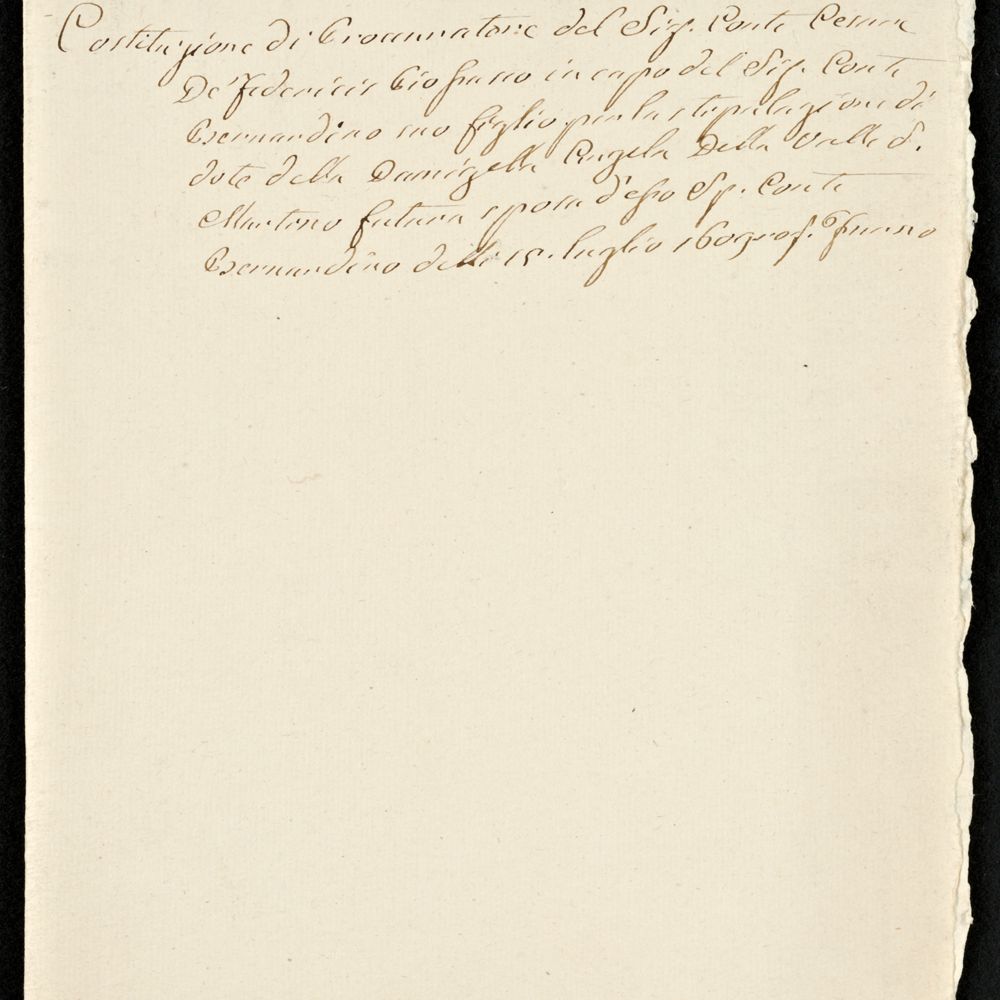 Costituzione di Procuratore del Sig. Conte Cesare
De' Federicis in capo del Sig. Conte
Bernardino suo figlio per la stipulazione di
dote della Damigella Angela Della Valle S.
Martino futura sposa d'esso Sig. Conte
Bernardino delli 15. luglio